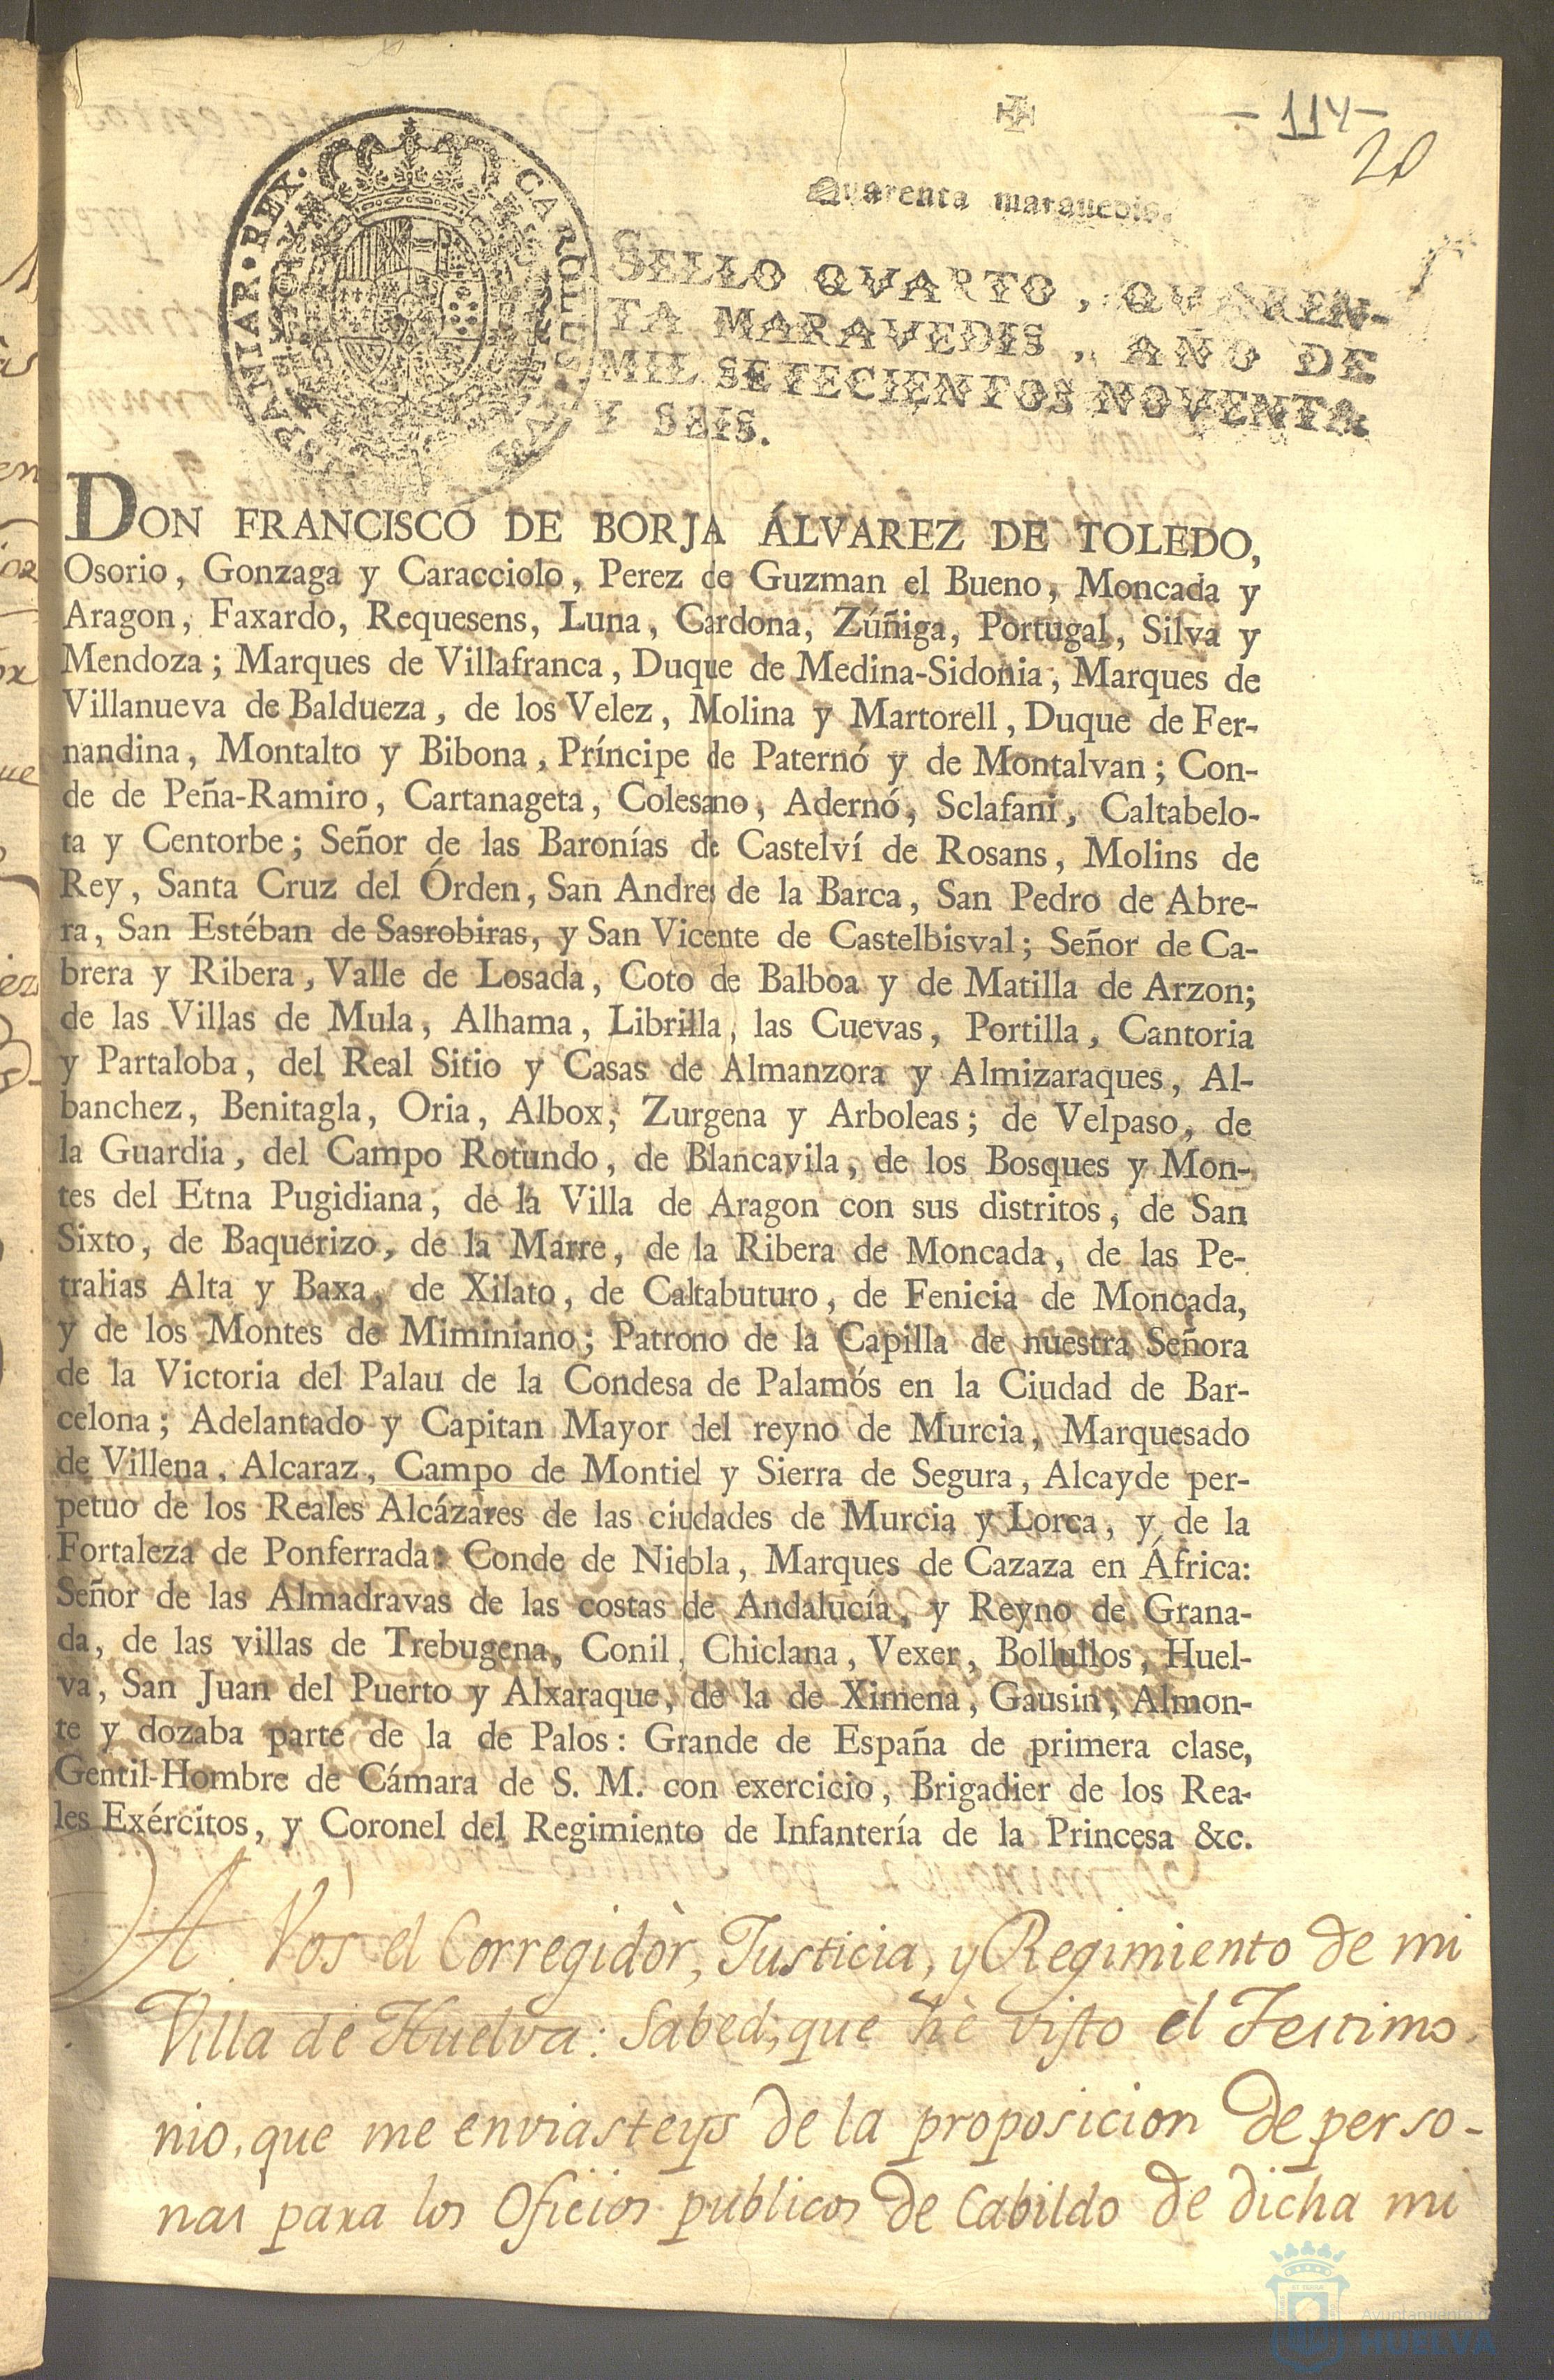 - 114 -
20
Quarenta maravedis.
SELLO QVARTO, QVAREN-
TA MARAVEDIS, AÑO DE
MIL SETECIENTOS NOVENTA
Y SEIS.
CAROLUS HISPANIAR. REX.
DON FRANCISCO DE BORJA ÁLVAREZ DE TOLEDO,
Osorio, Gonzaga y Caracciolo, Perez de Guzman el Bueno, Moncada y
Aragon, Faxardo, Requesens, Luna, Cardona, Zúñiga, Portugal, Silva y
Mendoza; Marques de Villafranca, Duque de Medina-Sidonia, Marques de
Villanueva de Baldueza, de los Velez, Molina y Martorell, Duque de Fer-
nandina, Montalto y Bibona, Príncipe de Paternó y de Montalvan; Con-
de de Peña-Ramiro, Cartanageta, Colesano, Adernó, Sclafani, Caltabelo-
ta y Centorbe; Señor de las Baronías de Castelví de Rosans, Molins de
Rey, Santa Cruz del Órden, San Andres de la Barca, San Pedro de Abre-
ra, San Estéban de Sasrobiras, y San Vicente de Castelbisval; Señor de Ca-
brera y Ribera, Valle de Losada, Coto de Balboa y de Matilla de Arzon;
de las Villas de Mula, Alhama, Librilla, las Cuevas, Portilla, Cantoria
y Partaloba, del Real Sitio y Casas de Almanzora y Almizaraques, Al-
banchez, Benitagla, Oria, Albox, Zurgena y Arboleas; de Velpaso, de
la Guardia, del Campo Rotundo, de Blancavila, de los Bosques y Mon-
tes del Etna Pugidiana, de la Villa de Aragon con sus distritos, de San
Sixto, de Baquerizo, de la Marre, de la Ribera de Moncada, de las Pe-
tralias Alta y Baxa, de Xilato, de Caltabuturo, de Fenicia de Moncada,
y de los Montes de Miminiano; Patrono de la Capilla de nuestra Señora
de la Victoria del Palau de la Condesa de Palamós en la Ciudad de Bar-
celona; Adelantado y Capitan Mayor del reyno de Murcia, Marquesado
de Villena, Alcaraz, Campo de Montiel y Sierra de Segura, Alcayde per-
petuo de los Reales Alcázares de las ciudades de Murcia y Lorca, y de la
Fortaleza de Ponferrada: Conde de Niebla, Marques de Cazaza en África:
Señor de las Almadravas de las costas de Andalucía, y Reyno de Grana-
da, de las villas de Trebugena, Conil, Chiclana, Vexer, Bollullos, Huel-
va, San Juan del Puerto y Alxaraque, de la de Ximena, Gausin, Almon-
te y dozaba parte de la de Palos: Grande de España de primera clase,
Gentil-Hombre de Cámara de S. M. con exercicio, Brigadier de los Rea-
les Exércitos, y Coronel del Regimiento de Infantería de la Princesa &c.
A Vos el Corregidòr, Justicia, y Regimiento de mi
Villa de Huelva: Sabed, que hè visto el Testimo-
nio, que me enviasteys de la proposicion de perso-
nas para los Oficios publicos de Cabildo de dicha mi
Ayuntamiento
HUELVA